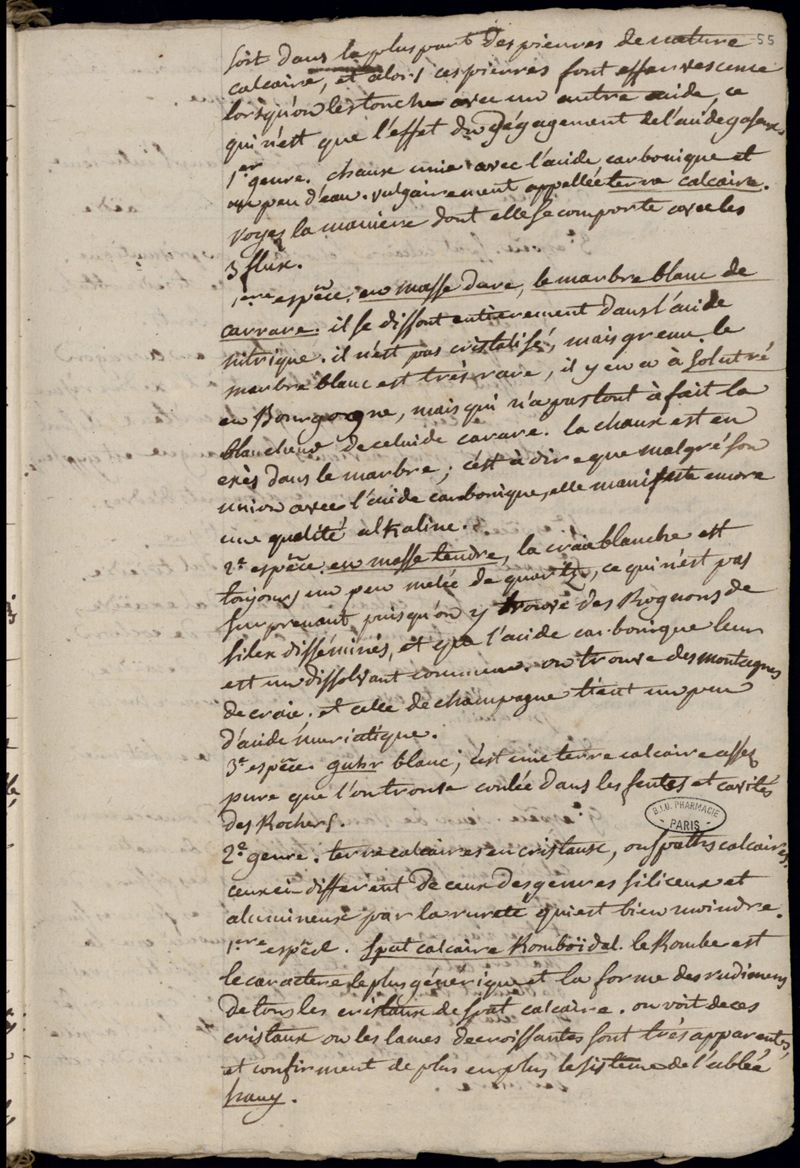 55
soit dans la plus part des pierres de nature
calcaire, et alors ces pierres font effervescence
lorsqu'on les touche avec un autre acide, ce
qui n'est que l'effet du dégagement de l'acide gaseux.
1er genre. chaux unie avec l'acide carbonique et
un peu d'eau. vulgairement appellée terre calcaire.
voyez la maniere dont elle se comporte avec les
3 flux.
1ere espèce. en masse dure, le marbre blanc de
carrare. il se dissout entierement dans l'acide
nitrique. il n'est pas cristalisé, mais grenu. le
marbre blanc est très rare, il y en a à Solutré
en Bourgogne, mais qui n'a pas tout à fait la
blancheur de celui de carare. la chaux est en
exès dans le marbre; c'est à dire que malgré son
union avec l'acide carbonique, elle manifeste encore
une qualité alkaline.
2e espèce. en masse tendre, la craie blanche est
toujours un peu melée de quartz, ce qui n'est pas
surprenant puisqu'on y trouve des Rognons de
silex disséminés, et que l'acide carbonique leur
est un dissolvant commun. on trouve des montagnes
de craie. et celle de champagne tient un peu
d'acide muriatique.
3e espèce. guhr blanc; c'est une terre calcaire assez
pure que l'on trouve coulée dans les fentes et cavités
des Rochers.
B.I.U. PHARMACIE
PARIS
2e genre. terre calcaires en cristaux, ou spaths calcaires.
ceux ci different de ceux des genres siliceux et
alumineux par la dureté qui est bien moindre.
1ere espèce. Spat calcaire Romboïdal. le Rombe est
le caractere le plus générique et la forme des rudimens
de tous les cristaux de spat calcaire. on voit de ces
cristaux ou les lames decroissantes sont très apparentes,
et confirment de plus en plus le sisteme de l'abbé
hauy.